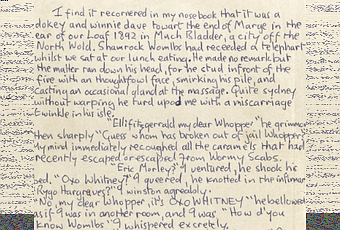 I find it recornered in my nosebook that it was a
dokey and winnie dave towart the end of Marge in the
ear of our Loaf 1892 in Much Bladder, a city off the
North Wold. Shamrock Wombs had receeded a telephart
whilst we sat at our lunch eating. he made no remark but
the matter ran down his head, for he stud infront of the
fire with an thoughtfowl face, smirking his pile, and
casting an occasional gland at the massage. Quite sydney
without warping he turd upod me with a miscarriage
twinkle in his isle.
"Ellifitzgerrald my dear Whopper" he grimmer
then sharply "Guess whom has broken out of jail Whopper"
My mind immediately recoughed all the caramels that had
recently escaped or escaped from Wormy Scabs.
"Eric Morley?" I ventured, he shook his
bed. "Oxo Whitney?" I queered, he knotted in the infirmar
"Rygo Hargraves?" I winston agreably.
"No, my dear Whopper, it's OXO WHITNEY" he bellowed
as if I was in another room, and I was "How d'you
know Wombs" I whispered excretely.